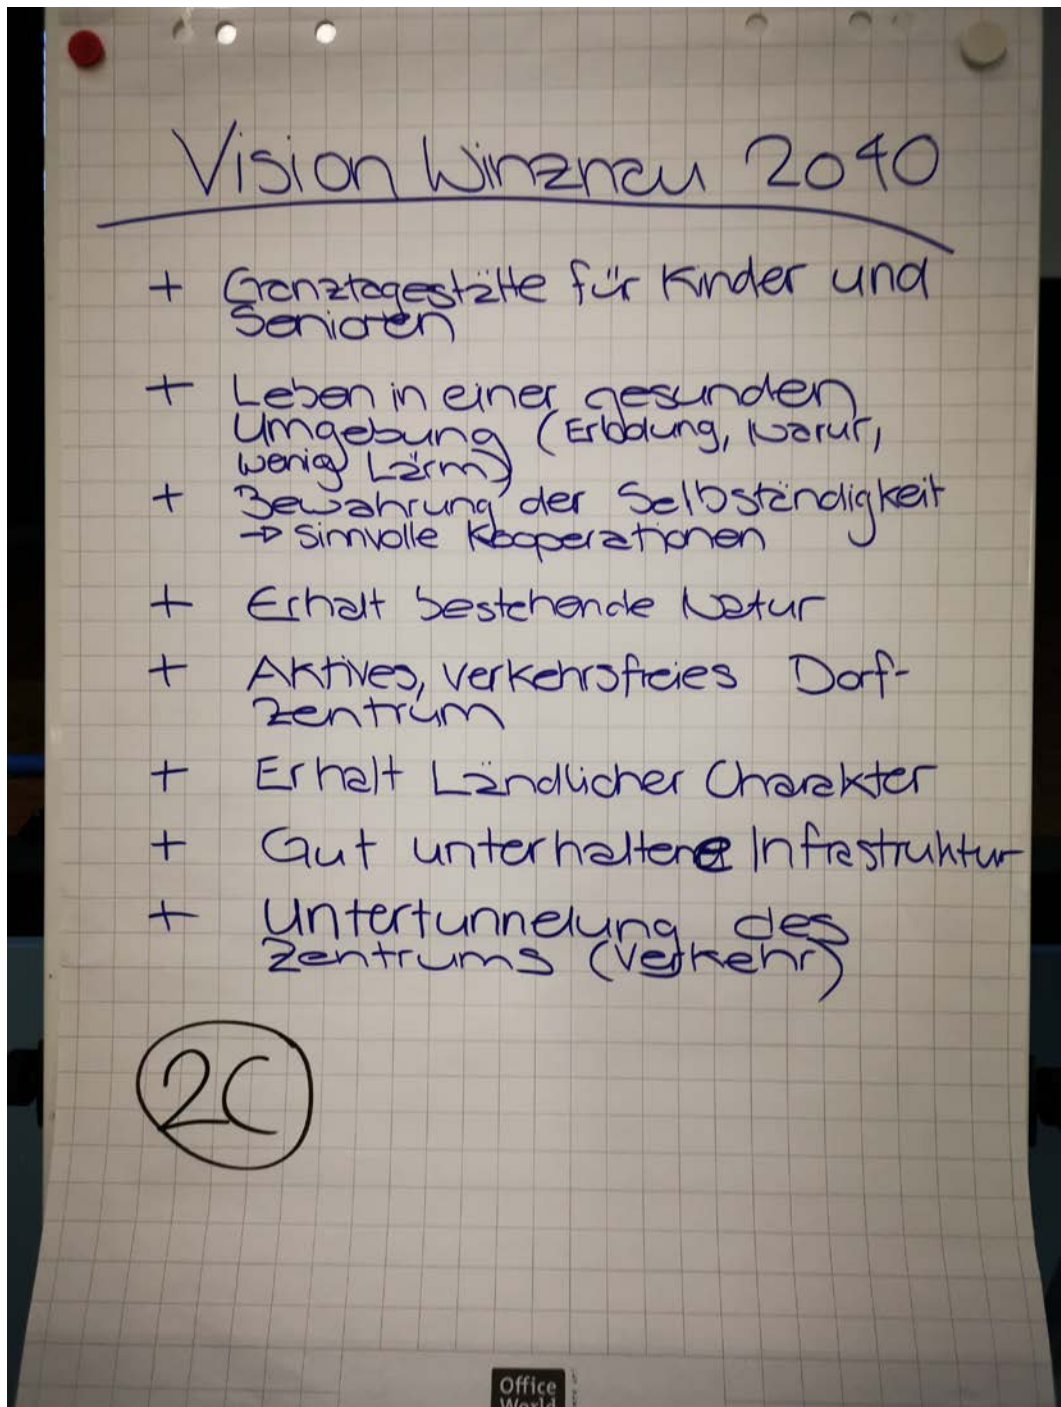 Vision Winznau 2040
+ Ganztagestätte für Kinder und
Senioren
+ Leben in einer gesunden
Umgebung (Erholung, Natur,
wenig Lärm)
+ Bewahrung der Selbständigkeit
→ Sinnvolle Kooperationen
+ Erhalt bestehende Natur
+ Aktives, verkehrsfreies Dorf-
zentrum
+ Erhalt Ländlicher Charakter
+ Gut unterhaltene Infrastruktur
+ Untertunnelung des
Zentrums (Verkehr)
2C
Office
World